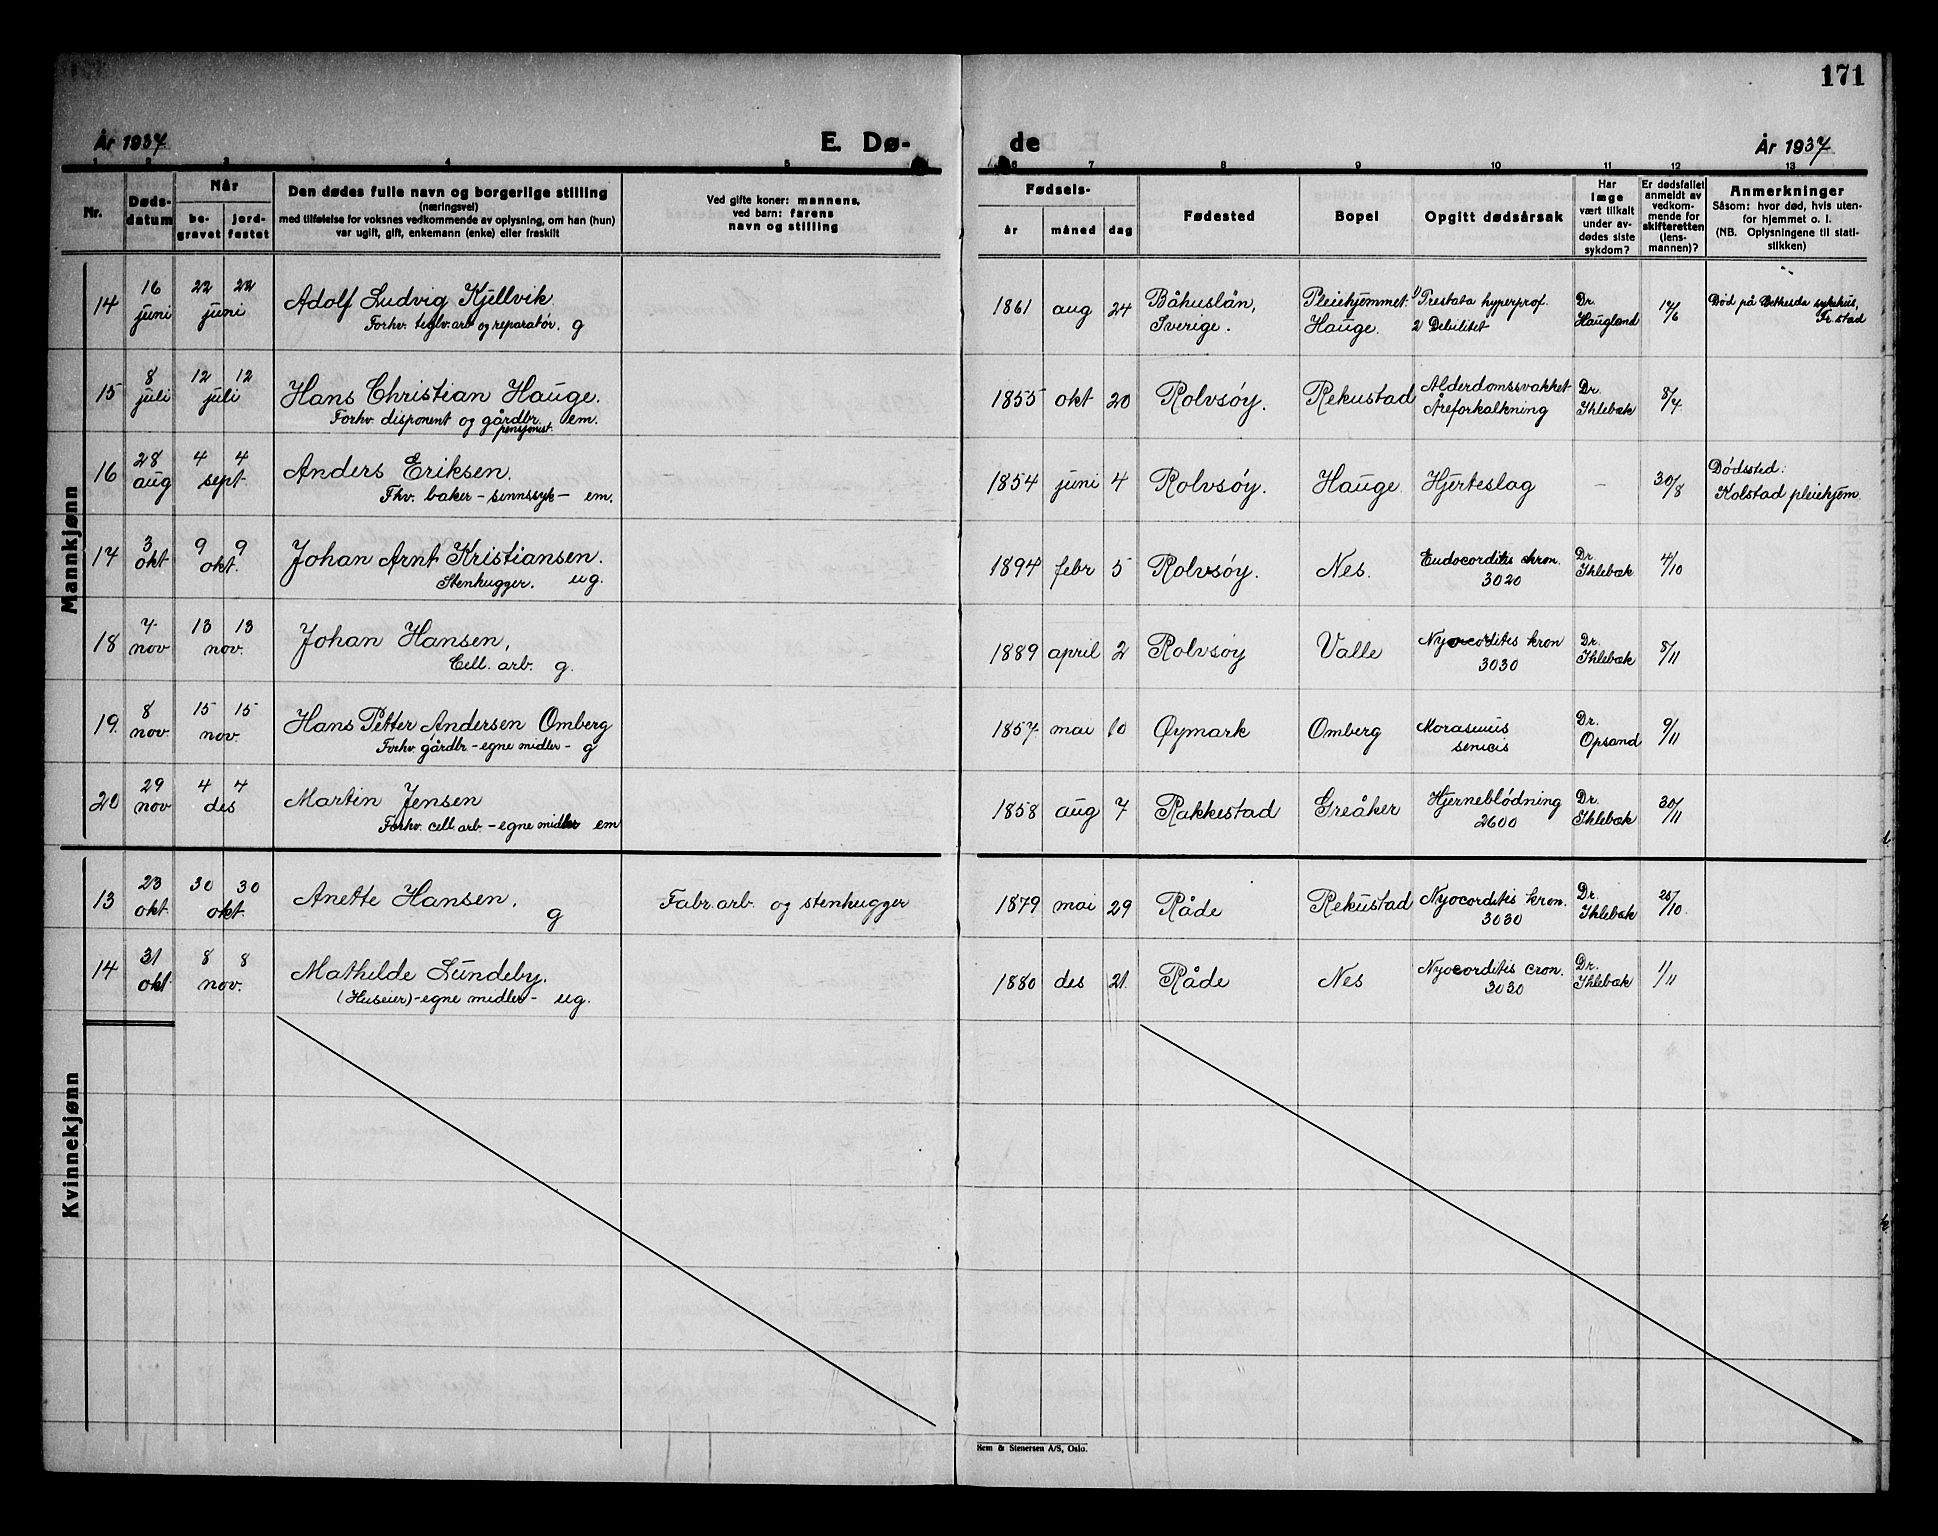 171
År 1937
E. Dø-
de
År 1937
1 2 3 4 5 6 7 8 9 10 11 12 13
Nr.
Døds-
datum
Når
be-
gravet
jord-
festet
Den dødes fulle navn og borgerlige stilling
(næringsvei)
med tilføielse for voksnes vedkommende av oplysning, om han (hun)
var ugift, gift, enkemann (enke) eller fraskilt
Ved gifte koner: mannens,
ved barn: farens
navn og stilling
Fødsels-
år måned dag
Fødested
Bopel
Opgitt dødsårsak
Har
læge
vært tilkalt
under av-
dødes siste
sykdom?
Er dødsfallet
anmeldt av
vedkom-
mende for
skifteretten
(lens-
mannen)?
Anmerkninger
Såsom: hvor død, hvis uten-
for hjemmet o. l.
(NB. Oplysningene til stati-
stikken)
Mannkjønn
14 16 juni 22 22 juni Adolf Ludvig Kjellvik 1861 aug 24 Båhuslän, Pleiehjemmet 1) Prestata hyperprof. Dr. 17/6 Død på Bethesda sykehus,
Forhv. teglv. arb og reparatør. g Sverige. Hauge. 2 Debilitet Haugland Fr. stad
15 8 juli 12 12 juli Hans Christian Hauge. 1855 okt 20 Rolvsøy. Rekustad Alderdomssvakket Dr. 8/7
Forhv. disponent og gårdbr. em. Åreforkalkning Ihlebæk
pensjonist.
16 28 aug 4 4 sept. Anders Eriksen. 1854 juni 4 Rolvsøy. Hauge Hjerteslag - 30/8 Dødssted:
Fhv. baker - sinnssyk - em. Kolstad pleiehjem.
17 3 okt 9 9 okt. Johan Arnt Kristiansen. 1894 febr 5 Rolvsøy. Nes. Endocorditis kron. Dr. 4/10
Stenhugger. ug. 3020 Ihlebæk
18 7 nov 13 13 nov. Johan Hansen, 1889 april 2 Rolvsøy Valle Nyocorditis kron Dr. 8/11
Cell. arb. g. 3030 Ihlebæk
19. 8 nov. 15 15 nov. Hans Petter Andersen Omberg 1857. mai 10 Øymark Omberg Morasmus Dr. 9/11
Forhv. gårdbr - egne midler - g senicis Opsand
20 29 nov 4 4 des Martin Jensen 1858 aug 7 Rakkestad Greåker Hjerneblödning Dr. 30/11
Forhv. cell arb. - egne midler em 2600 Ihlebæk
Kvinnekjønn
13 23 okt. 30 30 okt. Anette Hansen, g Fabr. arb. og stenhugger 1879 mai 29 Råde Rekustad Nyocorditis kron. Dr. 25/10
3030 Ihlebæk
14 31 okt. 8 8 nov. Mathilde Lundeby. 1880 des 21. Råde Nes Nyocorditis cron. Dr. 1/11
(Huseier) - egne midler - ug. 3030 Ihlebæk
Sem & Stenersen A/S, Oslo.